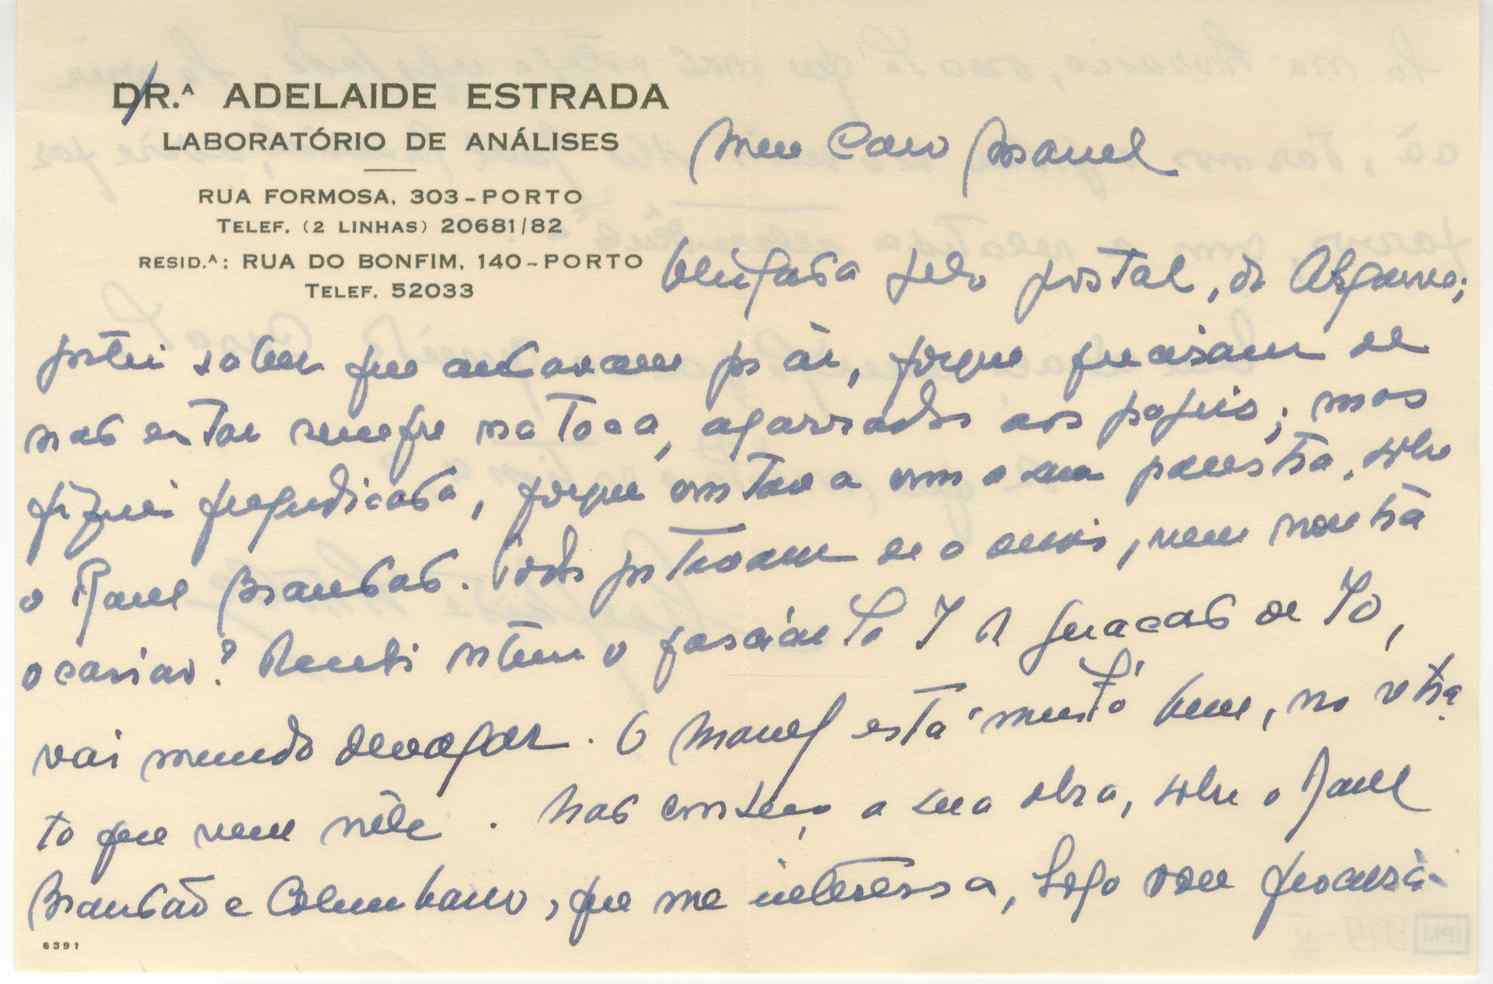 DR.ᴬ ADELAIDE ESTRADA
LABORATÓRIO DE ANÁLISES
RUA FORMOSA, 303-PORTO
TELEF. (2 LINHAS) 20681/82
RESID.ᴬ: RUA DO BONFIM, 140-PORTO
TELEF. 52033
Meu Caro Manuel
Obrigada pelo postal, do Algarve;
gostei saber que andavam por ái, porque precisam de
não estar sempre na toca, agarrados aos papeis; mas
fiquei prejudicada, porque contava com a sua palestra, sobre
o Raul Brandão. Todos gostavam de o ouvir, nem noutra
ocasião? Recebi o fasciculo 7 de
vai muito devagar. O Manuel está muito bem, no retra
to que vem nêle. Não conheço a sua obra, sobre o Raul
Brandão e Columbano, que me interessa, logo vou procurá-
6391